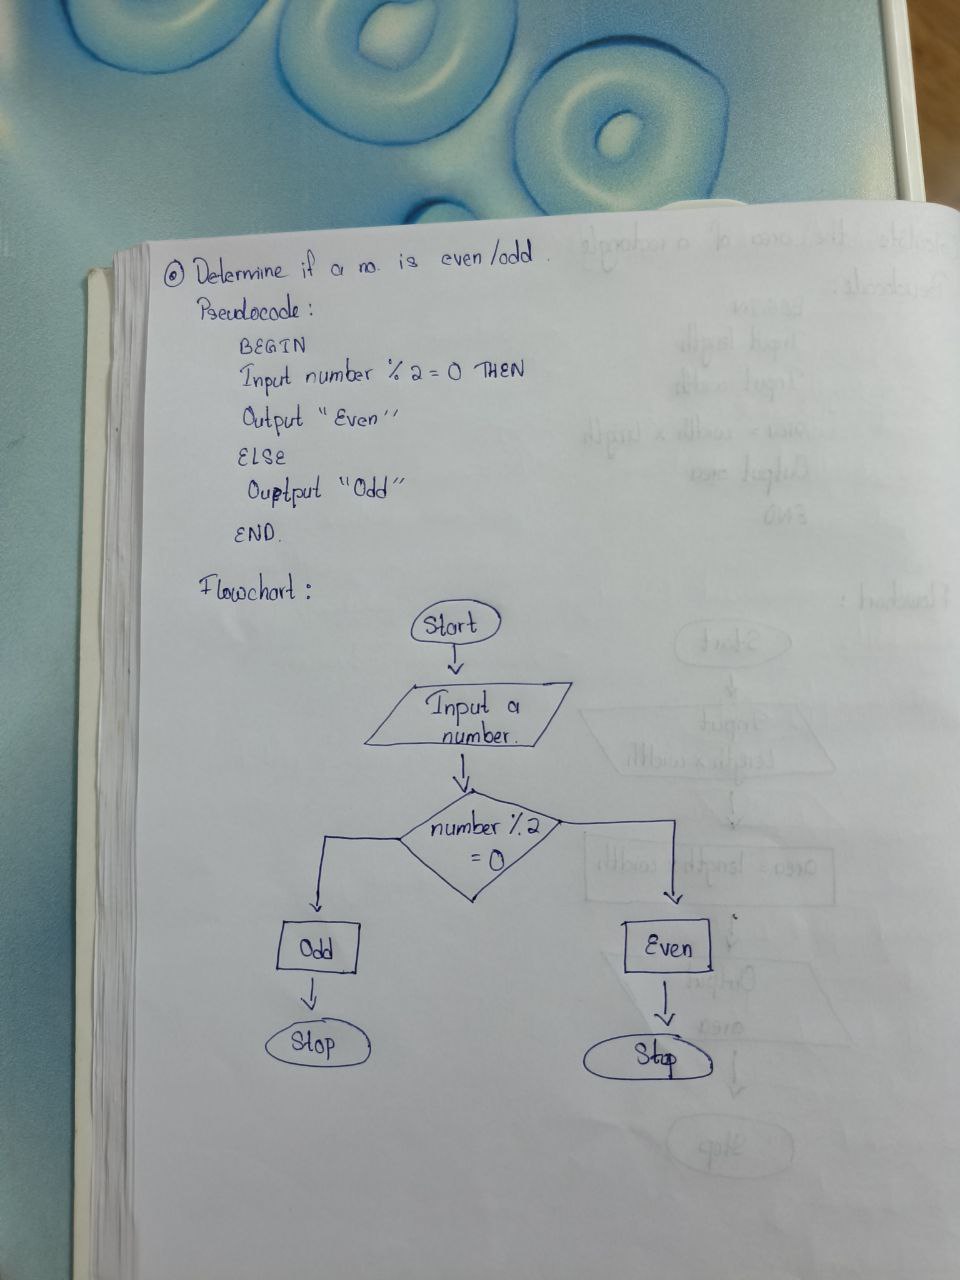 Determine if a no. is even/odd.
Pseudocode:
BEGIN
Input number % 2 = 0 THEN
Output "Even"
ELSE
Output "Odd"
END.
Flowchart:
Start
Input a
number.
number % 2
= 0
Odd
Even
Stop
Stop